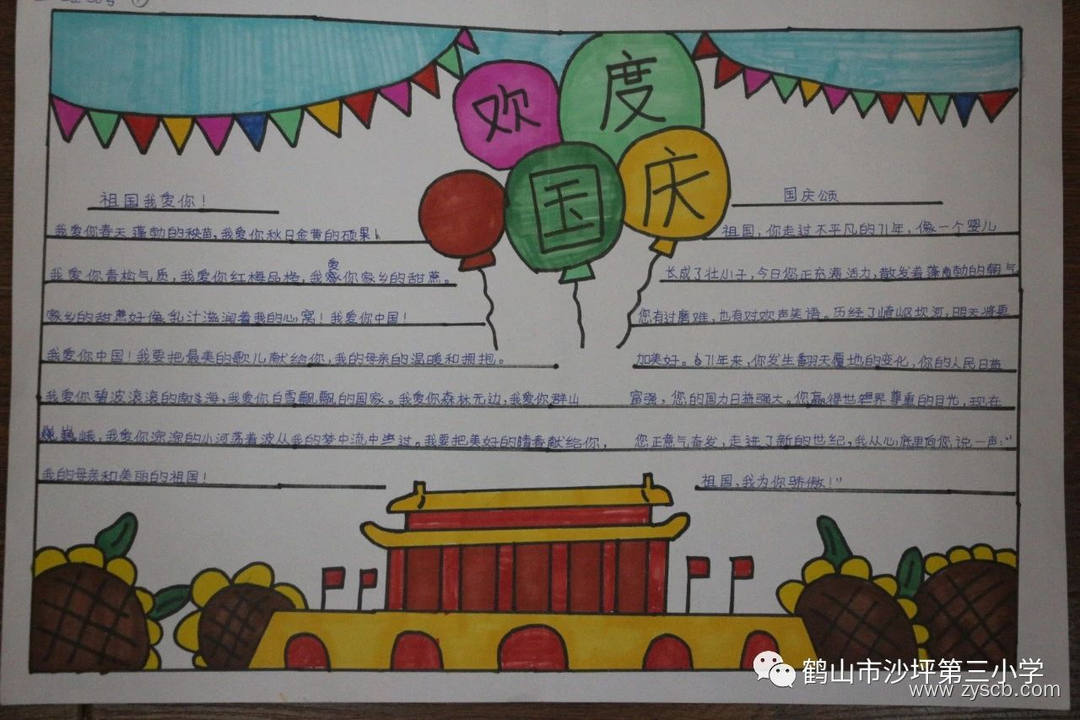 欢度
国庆
祖国我爱你！
我爱你春天蓬勃的秧苗，我爱你秋日金黄的硕果，
我爱你青松气质，我爱你红梅品格，我爱你家乡的甜蔗。
家乡的甜蔗好像乳汁滋润着我的心窝！我爱你中国！
我爱你中国！我要把最美的歌儿献给你，我的母亲的温暖和拥抱。
我爱你碧波滚滚的南海，我爱你白雪飘飘的国家。我爱你森林无边，我爱你群山
巍峨，我爱你淙淙的小河荡着波从我的梦中流过。我要把美好的青春献给你，
我的母亲和美丽的祖国！
国庆颂
祖国，你走过不平凡的71年，像一个婴儿
长成了壮小子，今日您正充满活力，散发着蓬勃的朝气
您有过磨难，也有过欢声笑语。历经了崎岖坎坷，明天将更
加美好。71年来，你发生翻天覆地的变化，你的人民日益
富强，您的国力日益强大。你赢得世界尊重的目光，现在
您正意气奋发，走进了新的世纪，我从心底里向您说一声："
祖国，我为你骄傲！"
鹤山市沙坪第三小学
www.zyscb.com